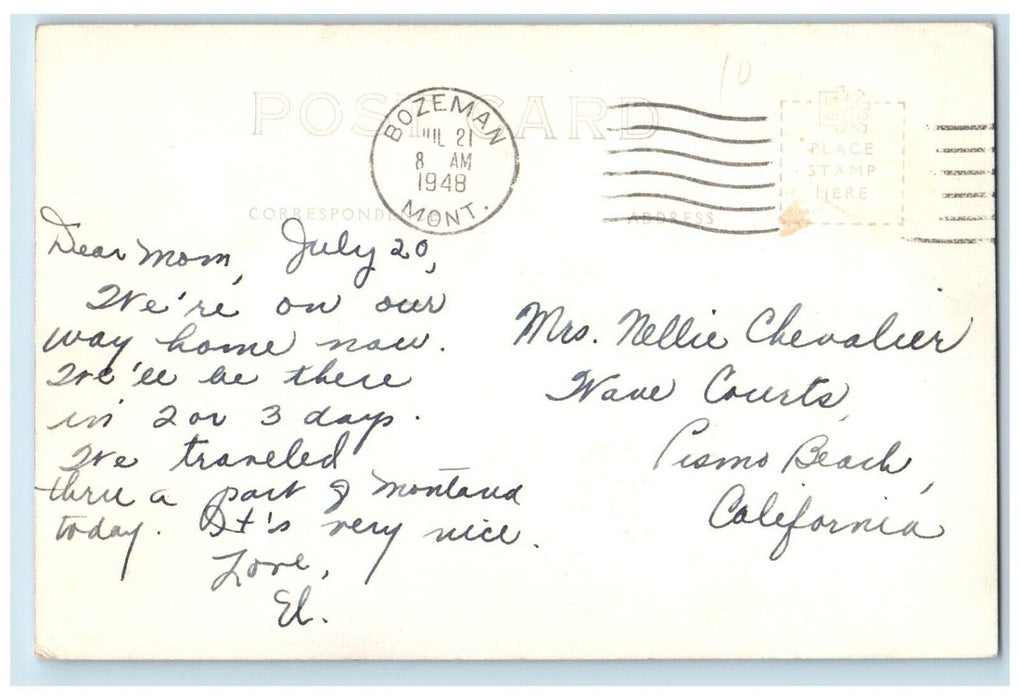 10
POST CARD
BOZEMAN
JUL 21
8 AM
1948
MONT.
EKC
PLACE
STAMP
HERE
CORRESPONDENCE
ADDRESS
Dear Mom, July 20,
We're on our
way home now.
We'll be there
in 2 or 3 days.
We traveled
thru a part of Montana
today. It's very nice.
Love,
El.
Mrs. Nellie Chevalier
Wave Courts,
Pismo Beach,
California